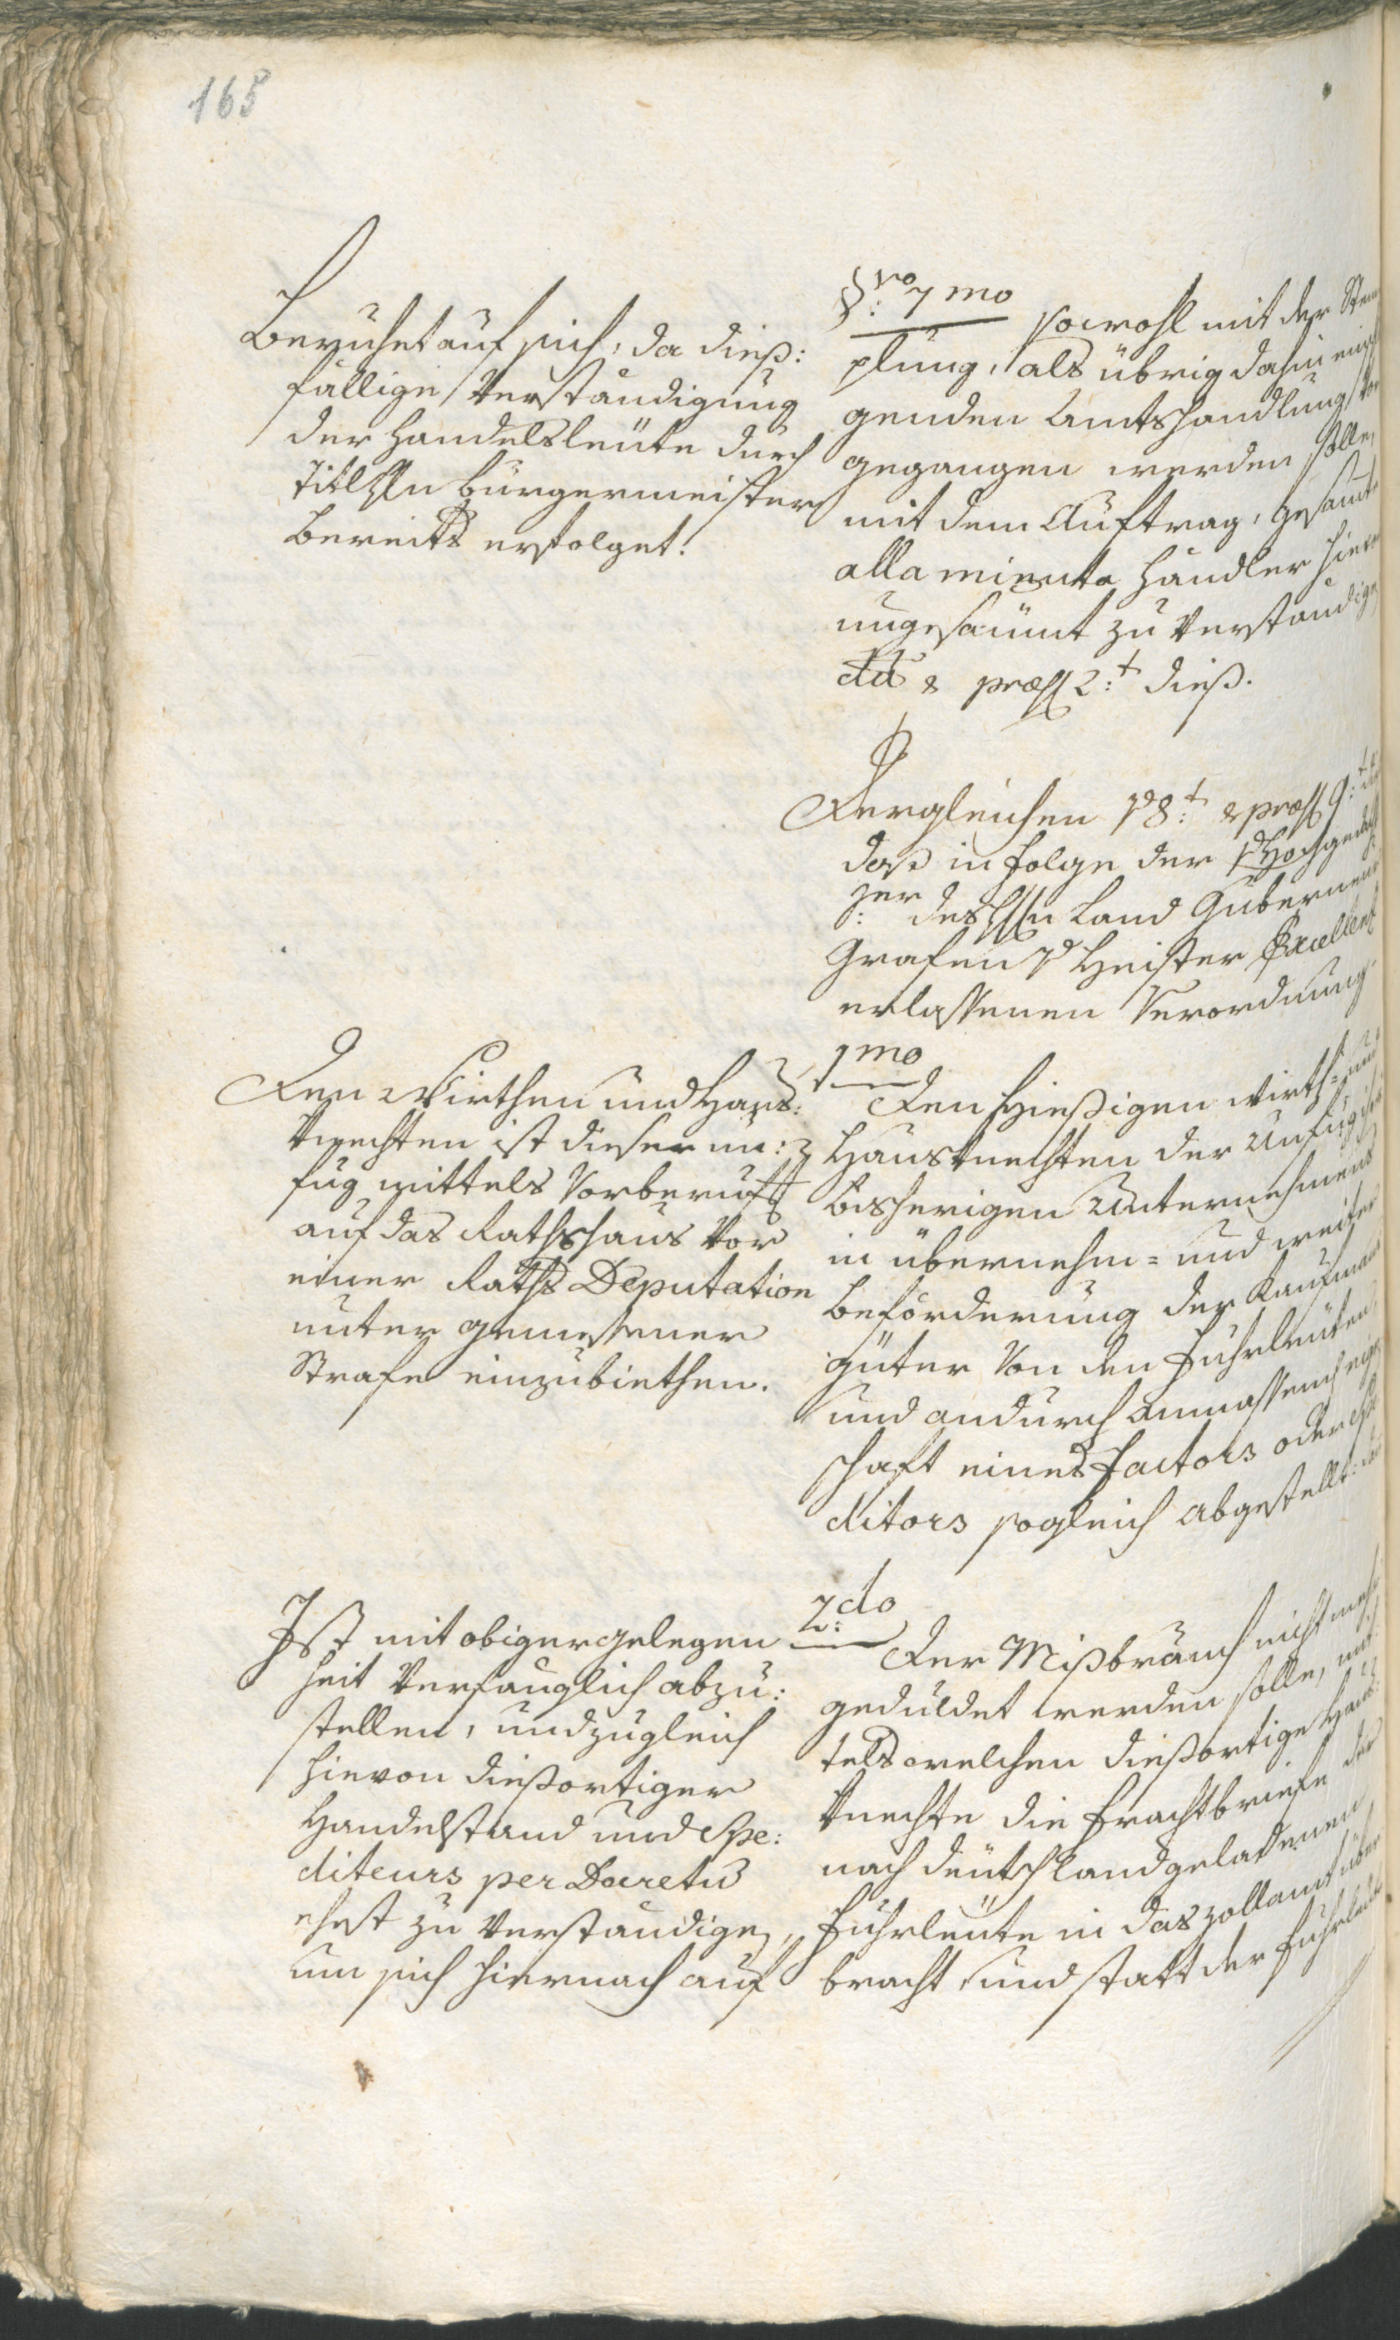 165
Beruhet auf sich, da dieß:
fällige Verständigung
der Handelsleüte durch
Titl Hn Bürgermeister
bereits erfolget.
§ro 7mo sowohl mit der Stem
plung, als übrig dahin einsch
genden Amtshandlung vor
gegangen werden solle,
mit dem Auftrag, gesamte
alla minuta Händler hievon
ungesäumt zu verständigen
dto & præs 2:t dieß.
Dergleichen 8:t & præs 9:t
daß in Folge der
des Hn Land Guberneurs
Grafen v Heister Excellenz
erlassenen Verordnung
1mo
Den hießigen Wirth= und
Hausknechten der Unfug ihres
bisherigen Unternehmens
in übernehm= und weiter
beförderung der Kaufmanns
güter von den Fuhrleüten,
und andurch anmassend eigen
schaft eines Factors oder Spe
ditors sogleich abgestellt
Den Wirthen und Haus:
knechten ist dieser un:
fug mittels Vorberuf
auf das Rathshaus vor
einer Raths Deputation
unter gemessener
Strafe einzubiethen.
2:do
Der Mißbrauch nicht mehr
geduldet werden solle, mit
tels welchen dießortige Haus
knechte die Frachtbriefe der
nach Deütschland geladenen
Fuhrleüte in das Zollamt über
bracht, und statt der Fuhrleüte
Ist mit obiger gelegen
heit verfänglich abzu:
stellen, und zugleich
hievon dießortiger
Handelstand und Spe:
diteurs per Decretum
ehest zu verständigen,
um sich hiernach auf